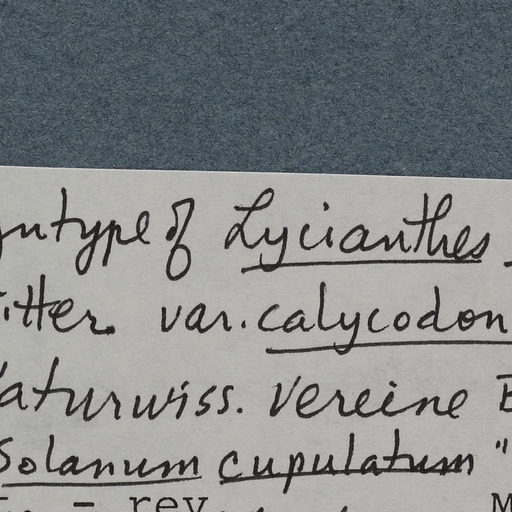 syntype of Lycianthes
Bitter var. calycodon
Naturwiss. Vereine B
Solanum cupulatum "
- rev. M